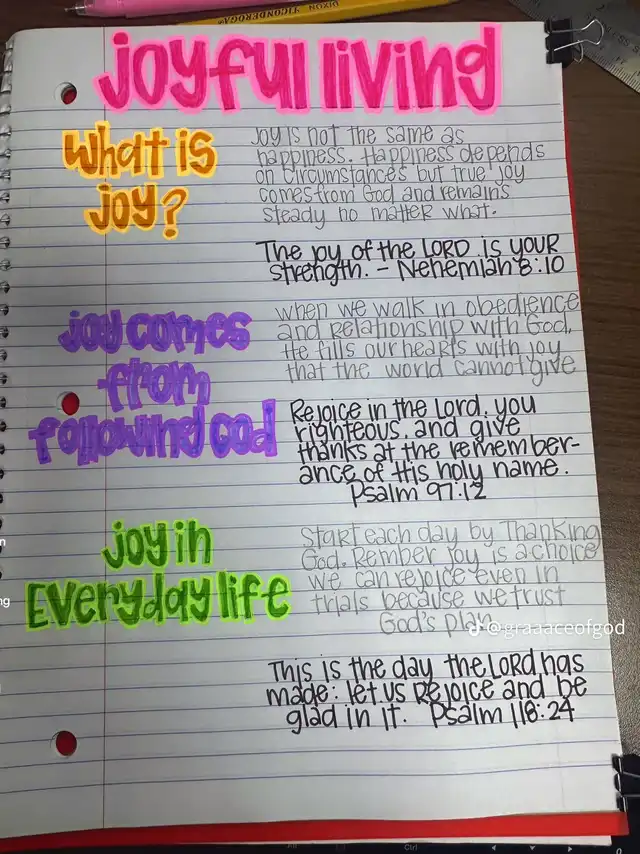 DIXON TICONDEROGA
joyful living
What is
joy?
Joy is not the same as
happiness. Happiness depends
on circumstances but true joy
comes from God and remains
steady no matter what.
The joy of the LORD is your
strength. - Nehemiah 8:10
joy comes
from
following God
when we walk in obedience
and relationship with God,
He fills our hearts with joy
that the world cannot give
Rejoice in the Lord, you
righteous, and give
thanks at the remember-
ance of His holy name.
Psalm 97:12
joy in
Everyday life
Start each day by Thanking
God. Rember joy is a choice
we can rejoice even in
trials because we trust
God's plan
@graaaceofgod
This is the day the LORD has
made: let us Rejoice and be
glad in it. Psalm 118:24
Ctrl